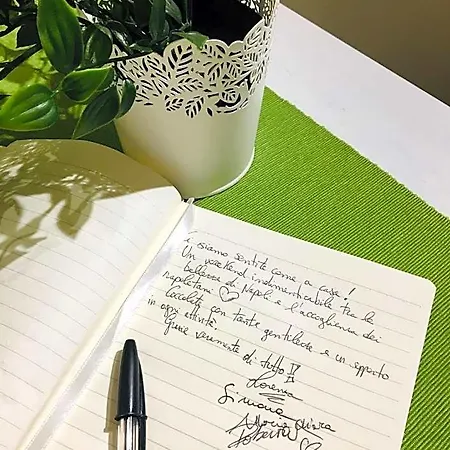 ci siamo sentite come a casa!
Un weekend indimenticabile tra le
bellezze di Napoli e l'accoglienza dei
napoletani
Coccolate con tanta gentilezza e un supporto
in ogni attività.
Grazie veramente di tutto!!
Lorena
Simona
Maria Chiara
Roberta